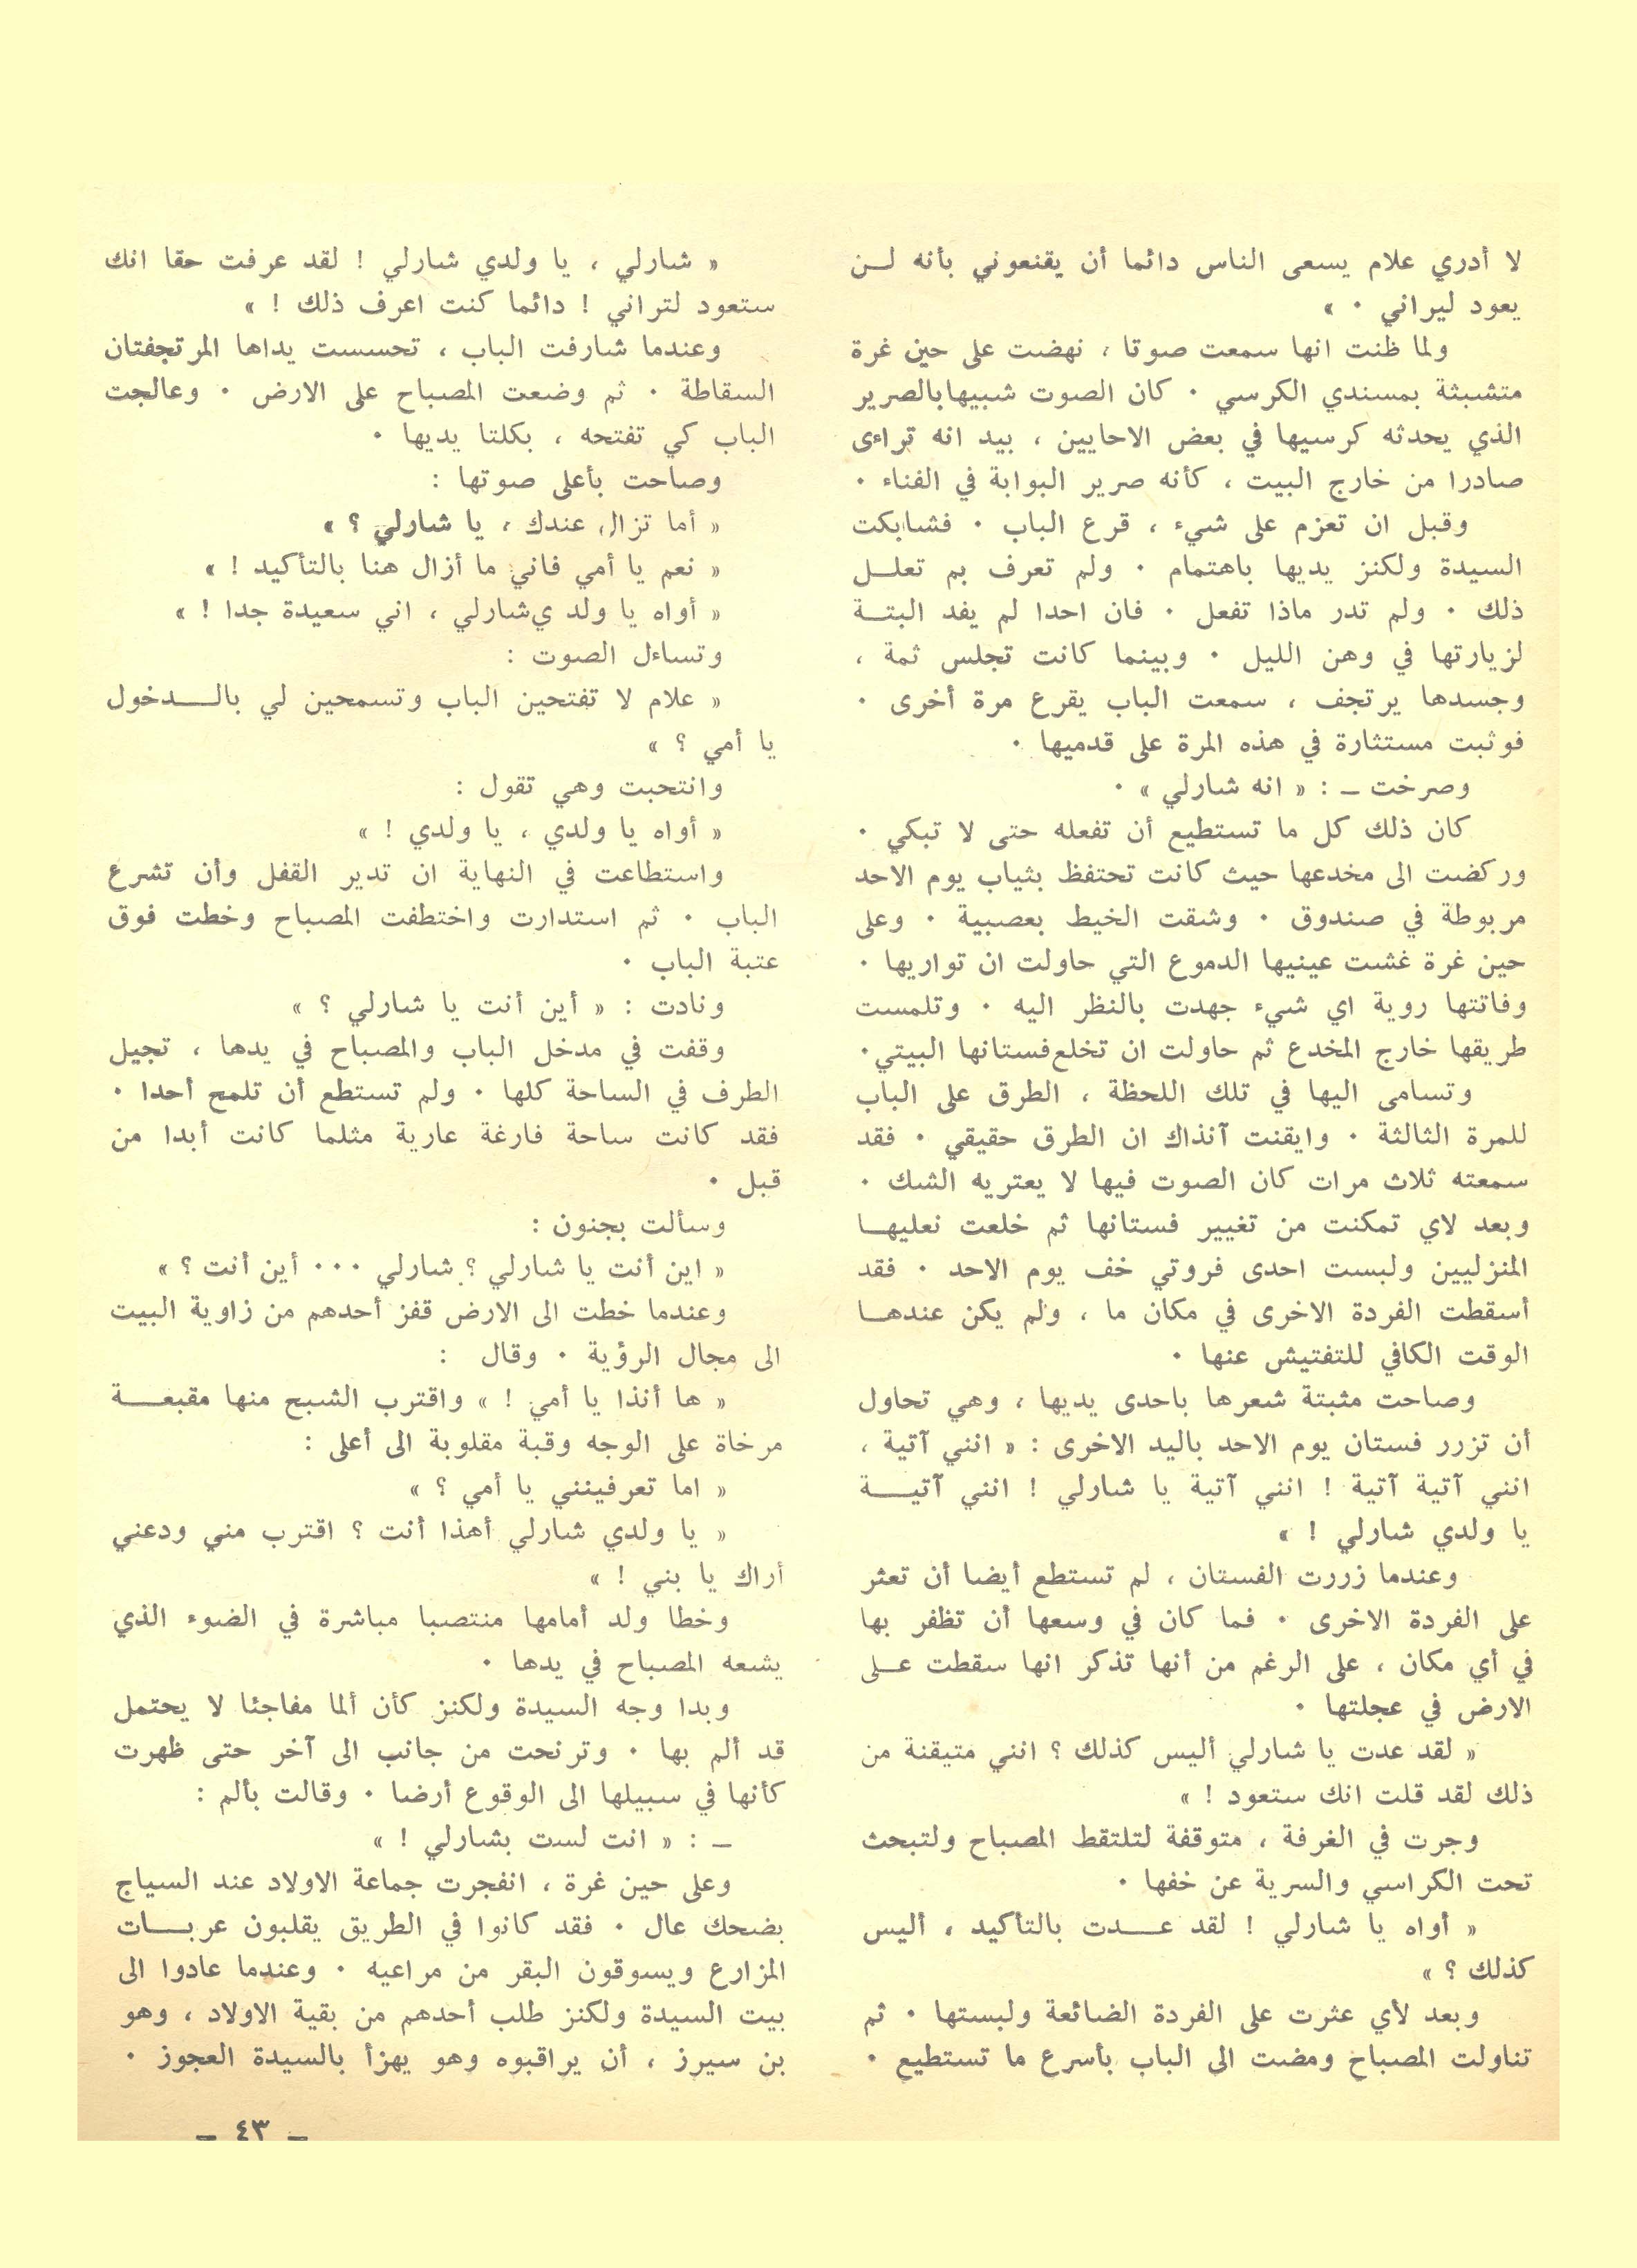 لا أدري علام يسعى الناس دائما أن يقنعوني بأنه لـن
يعود ليراني ٠ »
ولما ظنت انها سمعت صوتا ، نهضت على حين غرة
متشبثة بمسندي الكرسي ٠ كان الصوت شبيهابالصرير
الذي يحدثه كرسيها في بعض الاحايين ، بيد انه تراءى
صادرا من خارج البيت ، كأنه صرير البوابة في الفناء ٠
وقبل ان تعزم على شيء ، قرع الباب ٠ فشابكت
السيدة ولكنز يديها باهتمام ٠ ولم تعرف بم تعلـل
ذلك ٠ ولم تدر ماذا تفعل ٠ فان احدا لم يفد البتـة
لزيارتها في وهن الليل ٠ وبينما كانت تجلس ثمة ،
وجسدها يرتجف ، سمعت الباب يقرع مرة أخرى ٠
فوثبت مستثارة في هذه المرة على قدميها ٠
وصرخت ــ : « انه شارلي » ٠
كان ذلك كل ما تستطيع أن تفعله حتى لا تبكي ٠
وركضت الى مخدعها حيث كانت تحتفظ بثياب يوم الاحد
مربوطة في صندوق ٠ وشقت الخيط بعصبية ٠ وعلى
حين غرة غشت عينيها الدموع التي حاولت ان تواريها ٠
وفاتتها روية اي شيء جهدت بالنظر اليه ٠ وتلمست
طريقها خارج المخدع ثم حاولت ان تخلع فستانها البيتي ٠
وتسامى اليها في تلك اللحظة ، الطرق على الباب
للمرة الثالثة ٠ وايقنت آنذاك ان الطرق حقيقي ٠ فقد
سمعته ثلاث مرات كان الصوت فيها لا يعتريه الشك ٠
وبعد لاي تمكنت من تغيير فستانها ثم خلعت نعليهـا
المنزليين ولبست احدى فروتي خف يوم الاحد ٠ فقد
أسقطت الفردة الاخرى في مكان ما ، ولم يكن عندهـا
الوقت الكافي للتفتيش عنها ٠
وصاحت مثبتة شعرها باحدى يديها ، وهي تحاول
أن تزرر فستان يوم الاحد باليد الاخرى : « انني آتية ،
انني آتية آتية ! انني آتية يا شارلي ! انني آتيـــة
يا ولدي شارلي ! »
وعندما زررت الفستان ، لم تستطع أيضا أن تعثر
على الفردة الاخرى ٠ فما كان في وسعها أن تظفر بها
في أي مكان ، على الرغم من أنها تذكر انها سقطت عـلى
الارض في عجلتها ٠
« لقد عدت يا شارلي أليس كذلك ؟ انني متيقنة من
ذلك لقد قلت انك ستعود ! »
وجرت في الغرفة ، متوقفة لتلتقط المصباح ولتبحث
تحت الكراسي والسرية عن خفها ٠
« أواه يا شارلي ! لقد عـــدت بالتأكيد ، أليس
كذلك ؟ »
وبعد لأي عثرت على الفردة الضائعة ولبستها ٠ ثم
تناولت المصباح ومضت الى الباب بأسرع ما تستطيع ٠
« شارلي ، يا ولدي شارلي ! لقد عرفت حقا انك
ستعود لتراني ! دائما كنت اعرف ذلك ! »
وعندما شارفت الباب ، تحسست يداها المرتجفتان
السقاطة ٠ ثم وضعت المصباح على الارض ٠ وعالجت
الباب كي تفتحه ، بكلتا يديها ٠
وصاحت بأعلى صوتها :
« أما تزال عندك ، يا شارلي ؟ »
« نعم يا أمي فاني ما أزال هنا بالتأكيد ! »
« أواه يا ولد ي‌شارلي ، اني سعيدة جدا ! »
وتساءل الصوت :
« علام لا تفتحين الباب وتسمحين لي بالـــدخول
يا أمي ؟ »
وانتحبت وهي تقول :
« أواه يا ولدي ، يا ولدي ! »
واستطاعت في النهاية ان تدير القفل وأن تشرع
الباب ٠ ثم استدارت واختطفت المصباح وخطت فوق
عتبة الباب ٠
ونادت : « أين أنت يا شارلي ؟ »
وقفت في مدخل الباب والمصباح في يدها ، تجيل
الطرف في الساحة كلها ٠ ولم تستطع أن تلمح أحدا ٠
فقد كانت ساحة فارغة عارية مثلما كانت أبدا من
قبل ٠
وسألت بجنون :
« اين أنت يا شارلي ؟ شارلي ٠٠٠ أين أنت ؟ »
وعندما خطت الى الارض قفز أحدهم من زاوية البيت
الى مجال الرؤية ٠ وقال :
« ها أنذا يا أمي ! » واقترب الشبح منها مقبعــة
مرخاة على الوجه وقبة مقلوبة الى أعلى :
« اما تعرفينني يا أمي ؟ »
« يا ولدي شارلي أهذا أنت ؟ اقترب مني ودعني
أراك يا بني ! »
وخطا ولد أمامها منتصبا مباشرة في الضوء الذي
يشعه المصباح في يدها ٠
وبدا وجه السيدة ولكنز كأن ألما مفاجئا لا يحتمل
قد ألم بها ٠ وترنحت من جانب الى آخر حتى ظهرت
كأنها في سبيلها الى الوقوع أرضا ٠ وقالت بألم :
ــ : « انت لست بشارلي ! »
وعلى حين غرة ، انفجرت جماعة الاولاد عند السياج
بضحك عال ٠ فقد كانوا في الطريق يقلبون عربــات
المزارع ويسوقون البقر من مراعيه ٠ وعندما عادوا الى
بيت السيدة ولكنز طلب أحدهم من بقية الاولاد ، وهو
بن سيرز ، أن يراقبوه وهو يهزأ بالسيدة العجوز ٠
ــ ٤٣ ــ